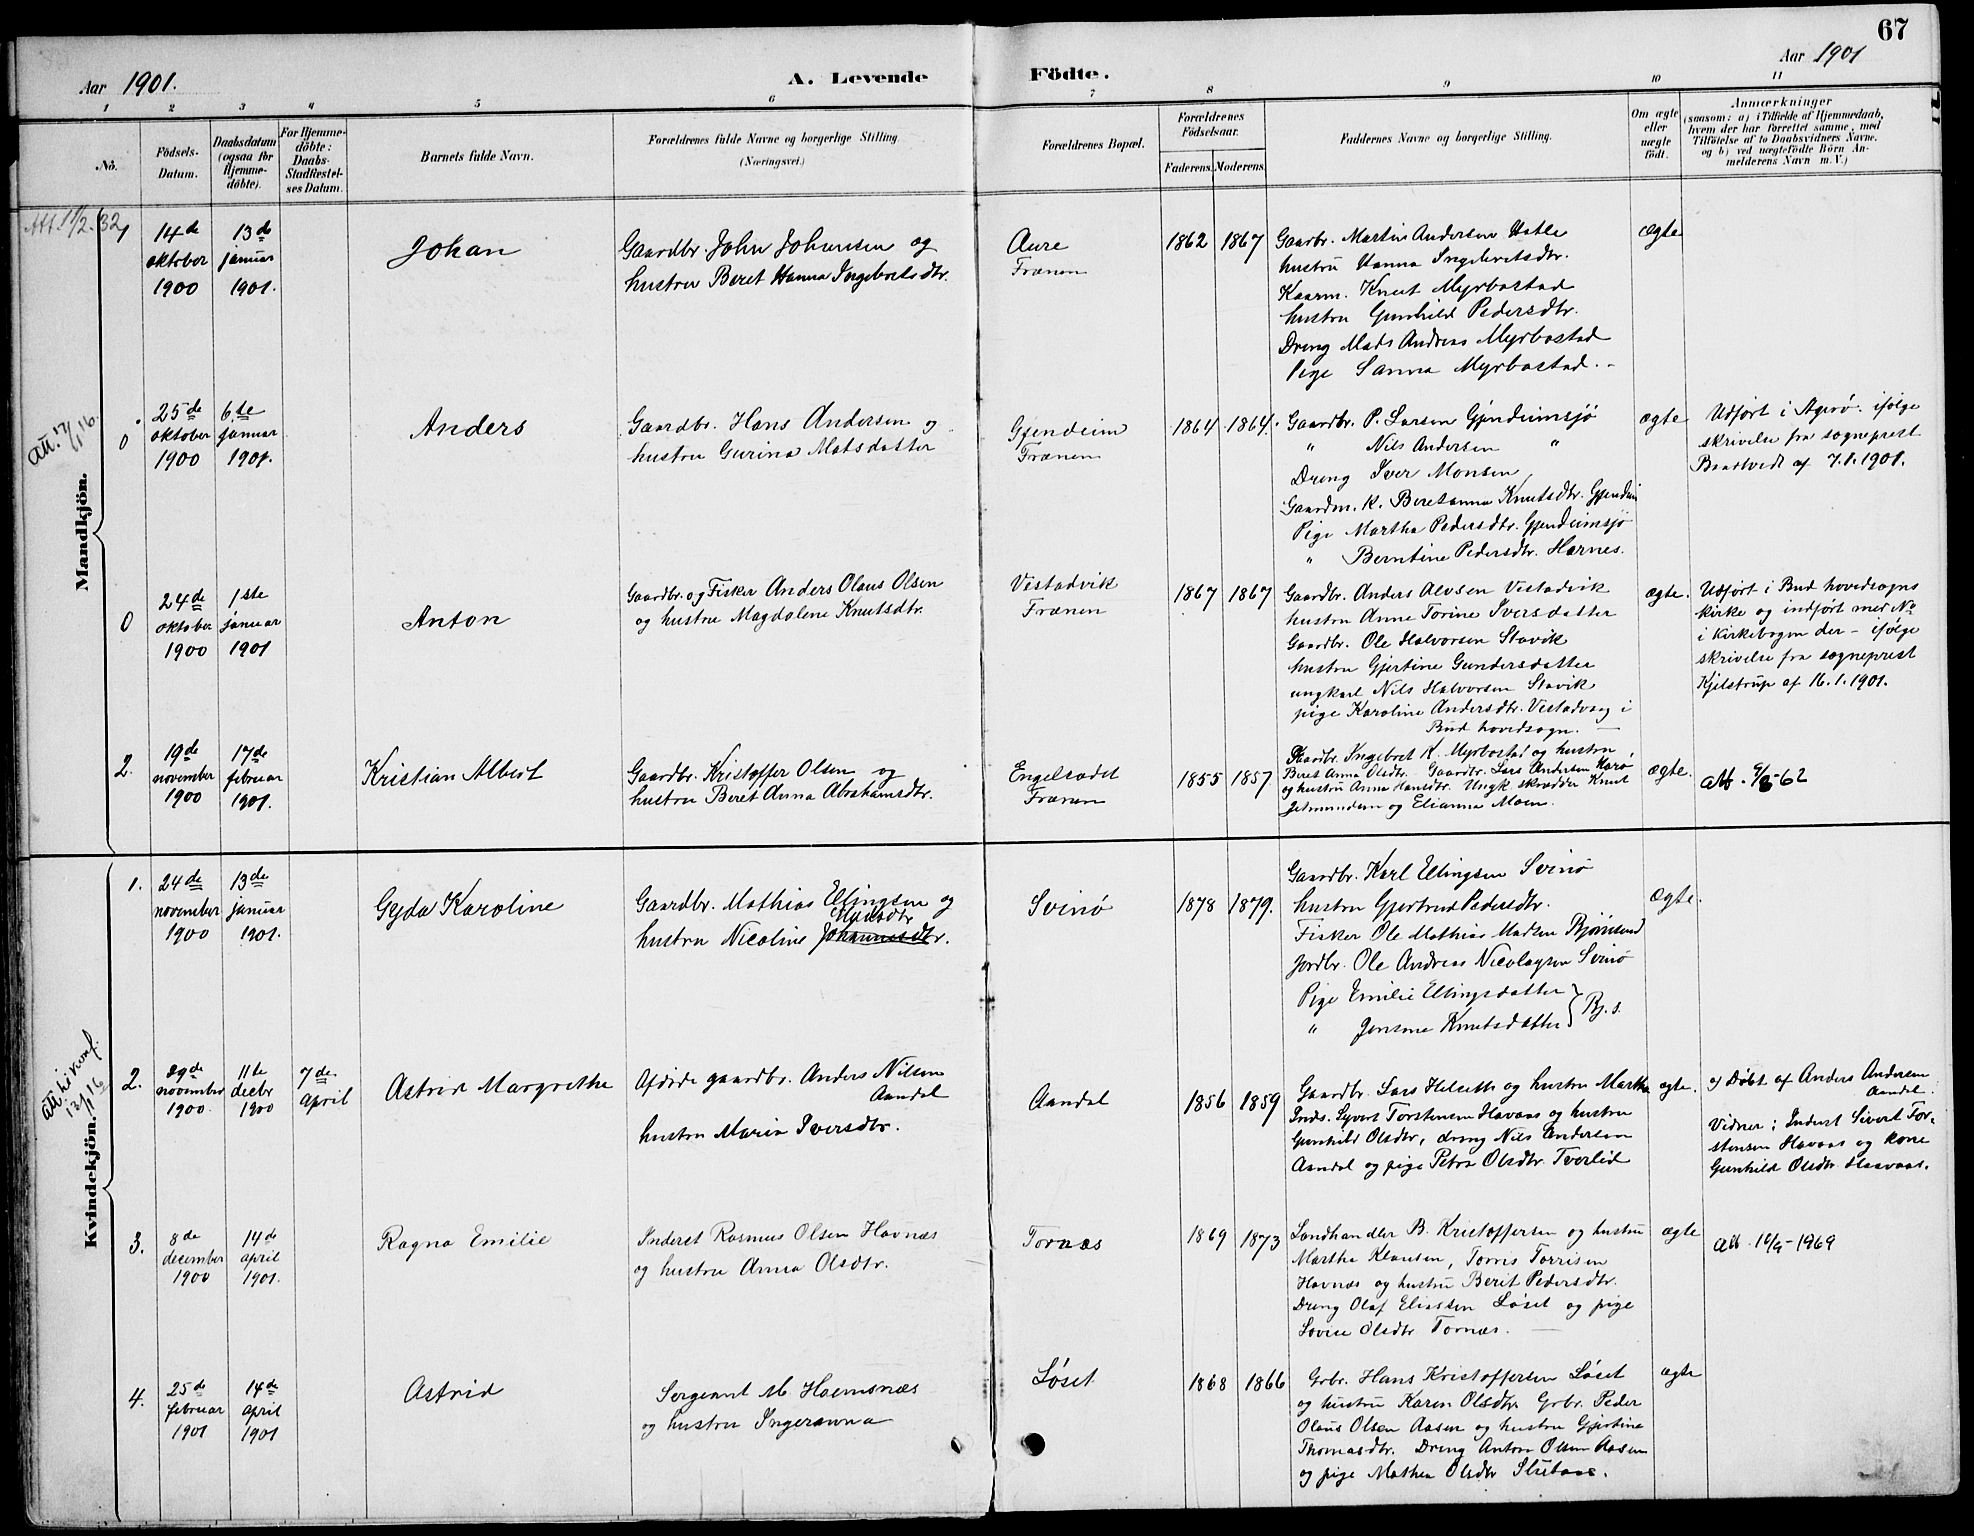 67
Aar 1901.
A. Levende
Födte.
Aar 1901
1 2 3 4 5 6 7 8 9 10 11
Nô.
Födsels-
Datum.
Daabsdatum
(ogsaa for
Hjemme-
döbte).
For Hjemme-
döbte:
Daabs-
Stadfestel-
ses Datum.
Barnets fulde Navn.
Forældrenes fulde Navne og borgerlige Stilling
(Næringsvei.)
Forældrenes Bopæl.
Forældrenes
Födselsaar.
Faderens. Moderens.
Faddernes Navne og borgerlige Stilling.
Om ægte
eller
uægte
födt.
Anmærkninger
(saasom: a) i Tilfælde af Hjemmedaab,
hvem der har forrettet samme, med
Tilföielse af to Daabsvidners Navne.
og b) ved uægtefödte Börn An-
melderens Navn m. V.)
Mandkjön.
Att. 11/2.32
1
14de
oktober
1900
13de
januar
1901.
Johan
Gaardbr. John Johansen og
hustru Beret Hanna Ingebretsdtr.
Aure
Frænen
1862
1867
Gaardbr. Martin Andersen Hatle
hustru Hanna Ingebretsdtr.
Kaarm. Knut Myrbostad
hustru Gunhild Pedersdtr.
Dreng Mads Andreas Myrbostad
Pige Sanna Myrbostad. -
ægte
0
25de
oktober
1900
6te
januar
1901.
Anders
Gaardbr. Hans Andersen og
hustru Gurina Matsdatter
Gjendeim
Frænen
1864
1864.
Gaardbr. P. Larsen Gjendeimsjö
" Nils Andersen "
Dreng Iver Monsen
Gaardm. k. Beretanna Knutsdtr. Gjendeim
Pige Martha Pedersdtr. Gjendeimsjö
" Berntine Pedersdtr. Harnes.
ægte
Udført i Agerö. ifølge
skrivelse fra sogneprest
af 7.1.1901.
0
24de
oktober
1900
1ste
januar
1901
Anton
Gaardbr. og Fisker Anders Olaus Olsen
og hustru Magdalene Knutsdtr.
Vestadvik
Frænen
1867
1867
Gaardbr. Anders Vestadvik
hustru Anne Torine Iversdatter
Gaardbr. Ole Halvorsen Stavik
hustru Gjertine Gundersdatter
ungkarl Nils Halvorsen Stavik
pige Karoline Andersdtr. Vestadvaag i
Bud hovedsogn.
ægte.
Udført i Bud hovedsogns
kirke og indført med No
i kirkebogen der - ifølge
skrivelse fra sogneprest
Kjelstrup af 16.1.1901.
2.
19de
november
1900
17de
februar
1901.
Kristian Albert
Gaardbr. Kristoffer Olsen og
hustru Beret Anna Abrahamsdtr.
Frænen
1855
1857
Gaardbr. Ingebret K. Myrbostad og hustru
Beret Anna Olsdtr. Gaardbr. Lars Andersen
og hustru Anna Hansdtr. Ungk. skrædder Knut
og Elianna Moen.
ægte.
Kvindekjön.
1.
24de
november
1900
13de
januar
1901.
Gyda Karoline
Gaardbr. Mathias Ellingsen og
Madsdtr
hustru Nicoline Johannesdtr.
Svinö
1878
1879.
Gaardbr. Karl Ellingsen Svinö
hustru Gjertrud Pedersdtr.
Fisker Ole Mathias Madsen Bjørnsund
Jordbr. Ole Andreas Nicolaysen Svinö
Pige Emilie Ellingsdatter
" Jensine Knutsdatter } Bj.s.
Ægte.
2.
29de
november
1900.
11te
decbr
1900
7de
april
Astrid Margrethe
Afdøde gaardbr. Anders Nilsen
Aandal
hustru Maria Iversdtr.
Aandal
1856
1859
Gaardbr. Lars Helseth og hustru Martha
Inds. Syvert Torstensen Havaas og hustru
Gunhild Olsdtr, dreng Nils Andersen
Aandal og pige Petra Olsdtr. Tverlid
ægte.
a) Døbt af Anders Andersen
Aandal.
Vidner: Inderst Sivert Tor-
stensen Havaas og kone
Gunhild Olsdtr. Haavaas.
3.
8de
december
1900
14de
april
1901.
Ragna Emilie
Inderst Rasmus Olsen Havnæs
og hustru Anna Olsdtr.
Tornæs
1869
1873
Landhandler B. Kristoffersen og hustru
Martha Klausen, Tomis Torrisen
Havnæs og hustru Berit Pedersdtr.
Dreng Olaf Eliassen Løset og pige
Lovise Olsdtr Tornæs.
ægte
4.
25de
februar
1901
14de
april
1901
Astrid
Sergeant M. Hoemsnæs
og hustru Ingeranna
Løset
1868
1866
Grbr. Hans Kristoffersen Løset
og hustru Karen Olsdtr. Grbr. Peder
Olaus Olsen Aasen og hustru Gjertine
Thomasdtr. Dreng Anton Olsen Aasen
og pige Mathea Olsdtr
ægte